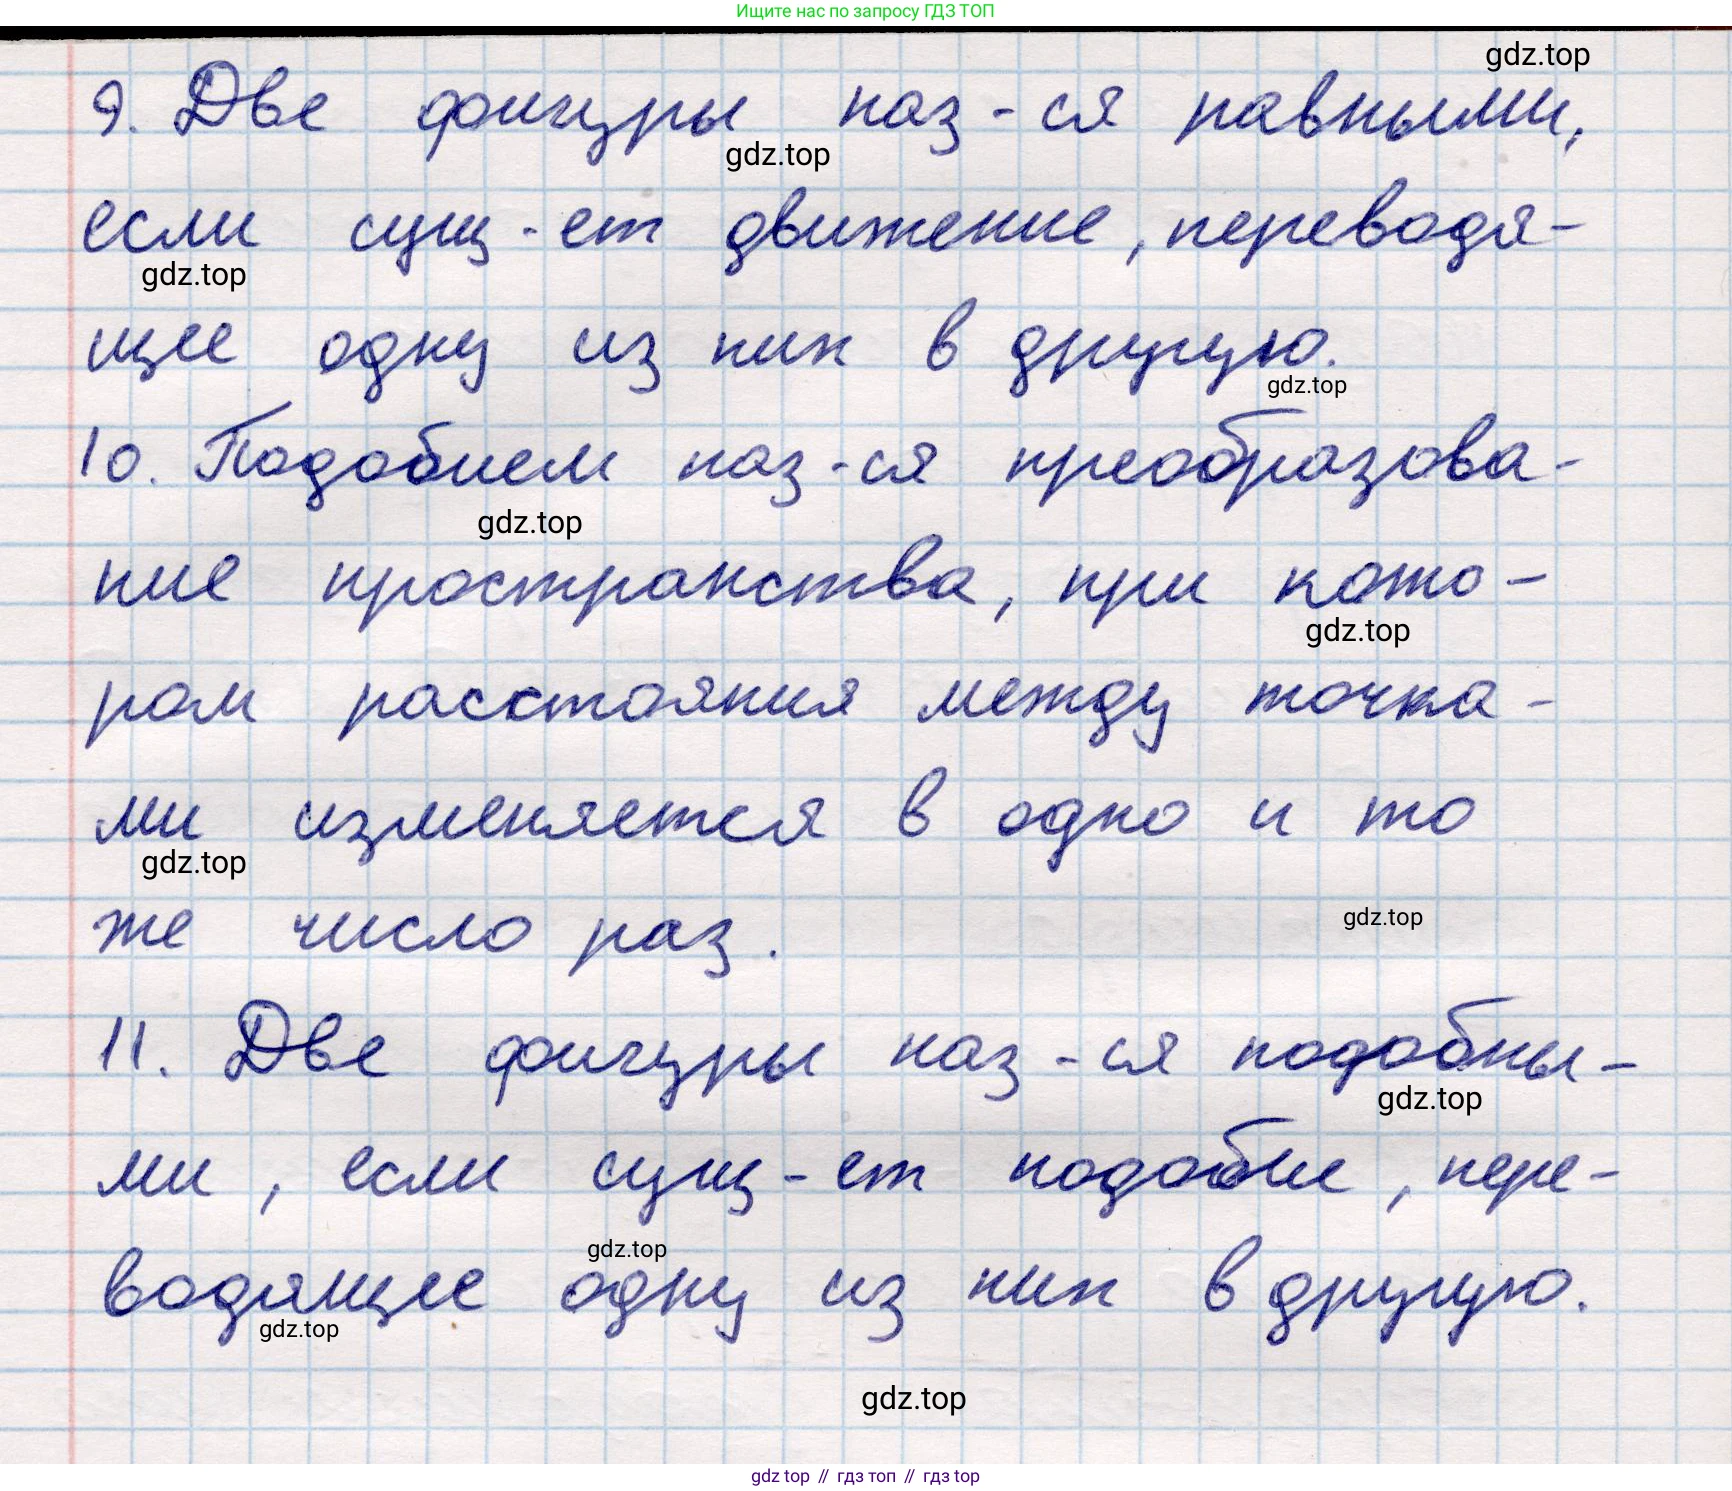 Ищите нас по запросу ГДЗ ТОП
gdz.top
9. Две фигуры наз-ся равными,
gdz.top
если сущ-ет движение, переводя-
gdz.top
щее одну из них в другую.
gdz.top
10. Подобием наз-ся преобразова-
gdz.top
ние пространства, при кото-
gdz.top
ром расстояния между точка-
ми изменяется в одно и то
gdz.top
же число раз.
gdz.top
11. Две фигуры наз-ся подобны-
gdz.top
ми, если сущ-ет подобие, пере-
gdz.top
водящее одну из них в другую.
gdz.top
gdz.top
gdz top // гдз топ // гдз top